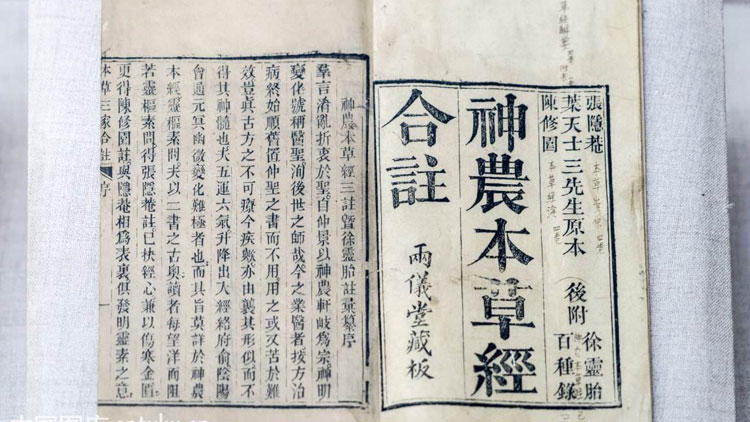 張隱菴
葉天士三先生原本
陳修園
後附
徐靈胎
百種錄
神農本草經
合註
兩儀堂藏板
神農本草經三註暨徐靈胎註彙纂序
羣言淆亂折衷於聖百仲景以神農軒岐爲宗神明
變化號稱醫聖洵後世之師哉今之業醫者拔方治
病槩始順舊置仲聖之書而不用用之或又苦於難
效豈眞古方之不可療今疾歟亦由襲其形似而不
得其神髓也夫五運六氣升降出大經絡府俞陰陽
會通元冥幽微變化難極者也而其旨莫詳於神農
本經靈樞素問夫以二書之古奧讀者每望洋而阻
若靈樞素問得張隱菴註已抉經心兼以傷寒金匱
更得陳修園註與隱菴相爲表裏俱發明靈素之意
本草三家合註 序